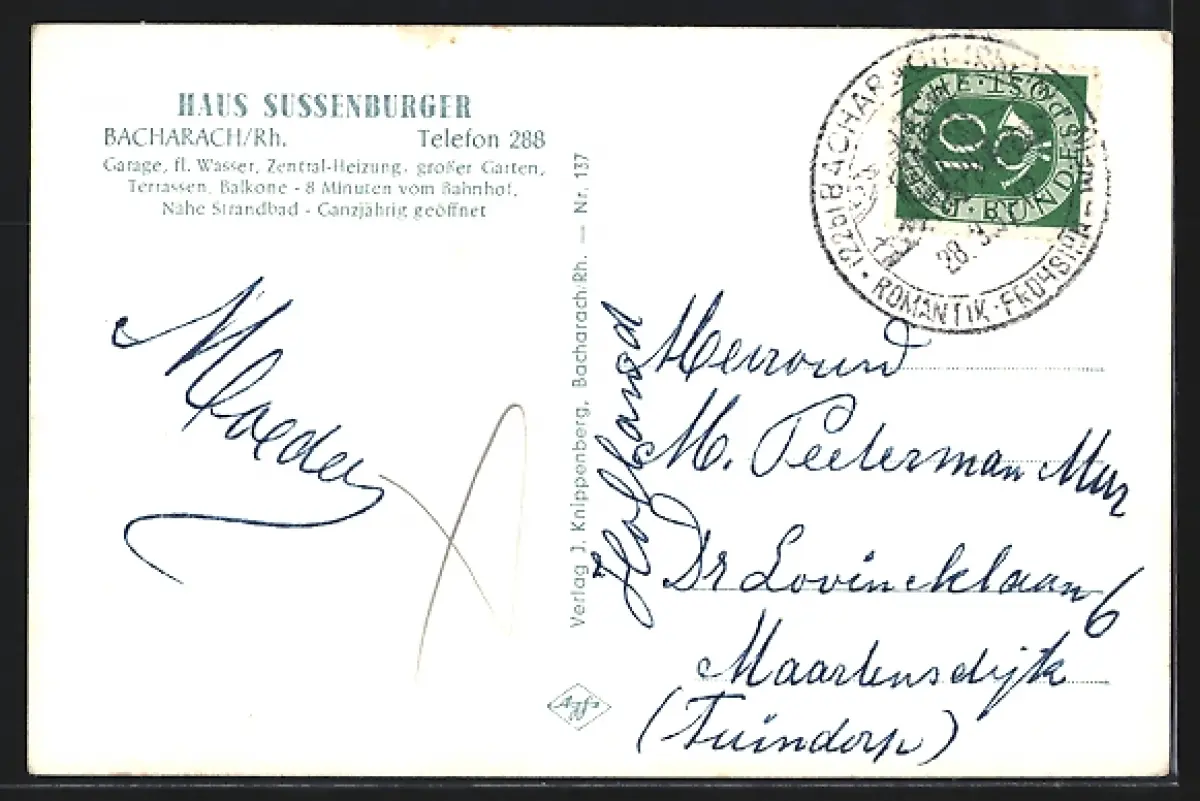 HAUS SUSSENBURGER
BACHARACH/Rh. Telefon 288
Garage, fl. Wasser, Zentral-Heizung, großer Garten,
Terrassen, Balkone - 8 Minuten vom Bahnhof,
Nahe Strandbad - Ganzjährig geöffnet
Moeder
Verlag J. Knippenberg, Bacharach/Rh. — Nr. 137
Agfa
(22b) BACHARACH (RHEIN)
ROMANTIK · FROHSINN - WEIN
28. 3.
DEUTSCHE BUNDESPOST
10
Holland
M. Peeterman
Dr Lovincklaan 6
Maartensdijk
(Tuindorp)